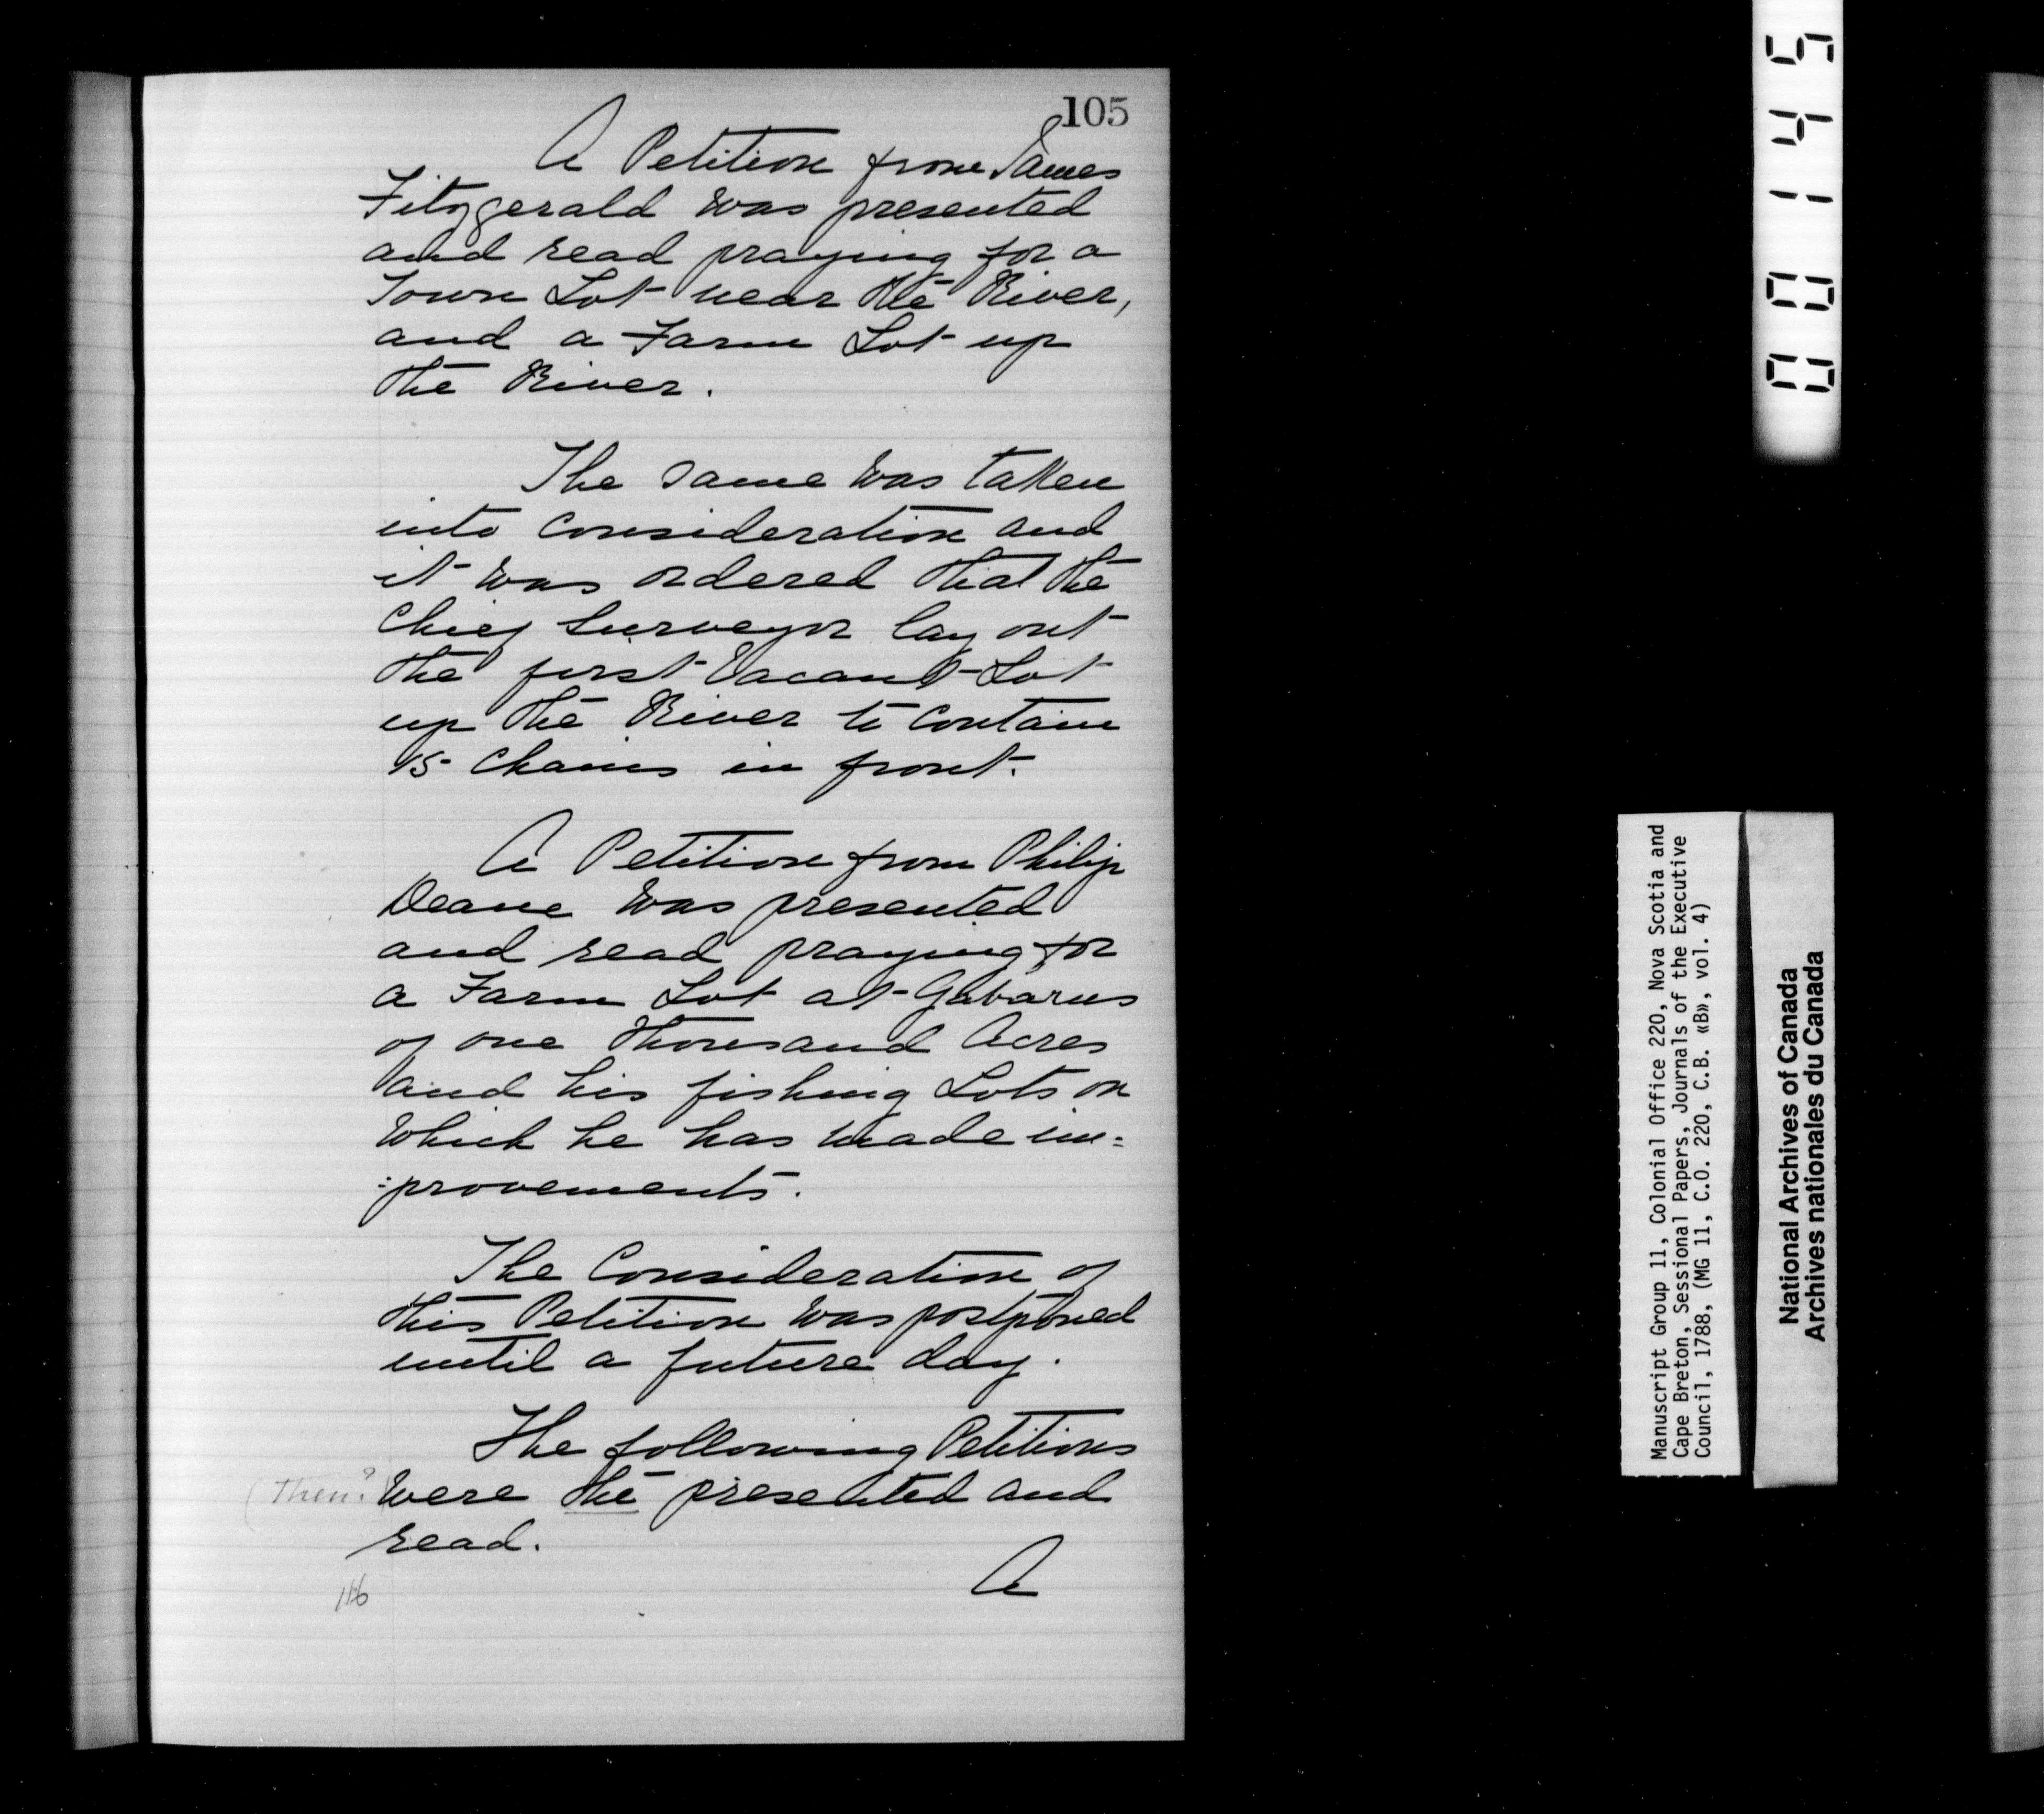 105
A Petition from James
Fitzgerald was presented
and read praying for a
Town Lot near the River,
and a Farm Lot up
the River.
The same was taken
into consideration and
it was ordered that the
Chief Surveyor lay out
the first Vacant Lot
up the River to contain
15 Chains in front.
A Petition from Philip
Deane was presented
and read praying for
a Farm Lot at Gabarus
of one Thousand Acres
and his fishing Lots on
which he has made im=
=provements.
The Consideration of
this Petition was postponed
until a future day.
The following Petitions
(Then?) were the presented and
read.
A
116
00145
Manuscript Group 11, Colonial Office 220, Nova Scotia and
Cape Breton, Sessional Papers, Journals of the Executive
Council, 1788, (MG 11, C.O. 220, C.B. «B», vol. 4)
National Archives of Canada
Archives nationales du Canada